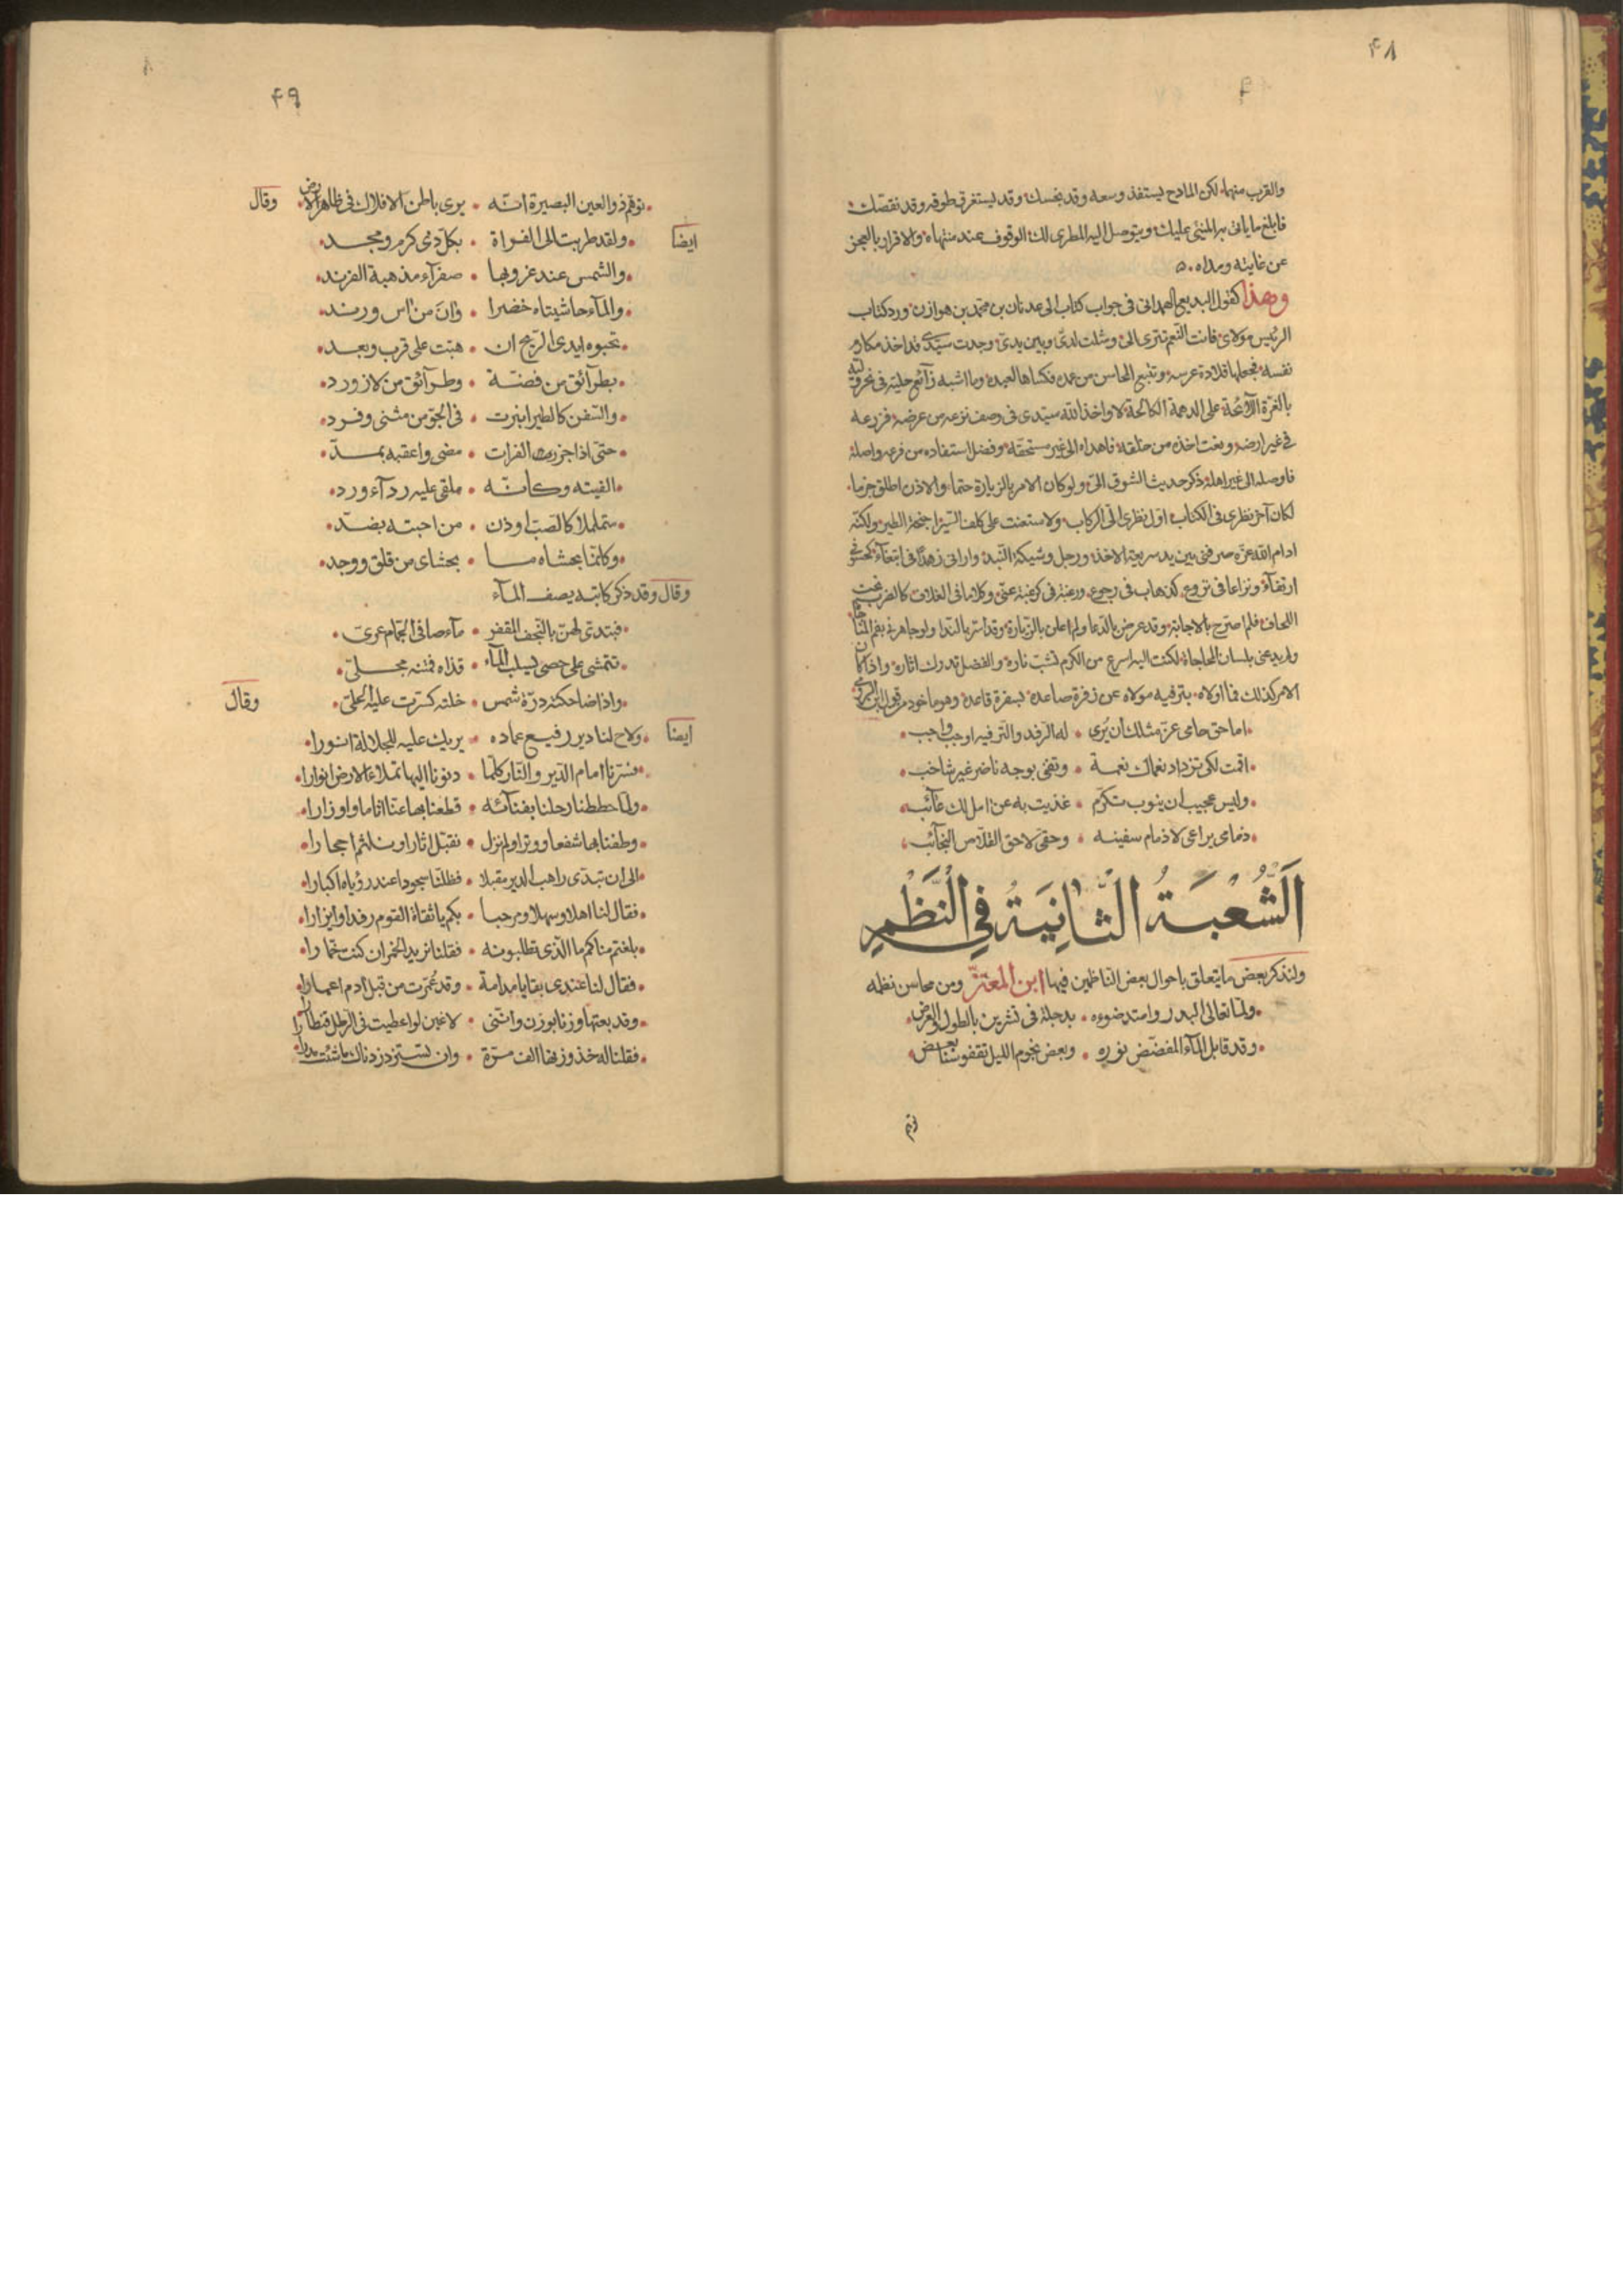 ۴۸
والقرب منها، لكن المادح يستفذ وسعه وقد بخسك، وقد يستغرق طوقه وقد نقصك،
فابلغ ما ياتى به المثنى عليك، ويتوصل اليه المطرى لك، الوقوف عند منتهاه، والاقرار بالعجز
عن غايته ومداه
وهذا كقول البديع الهمدانى فى جواب كتاب الى عدنان بن محمد بن هوازن، ورد كتاب
الرئيس مولاى فانت النعم تترى الى، ومثلت لدى وبين يدى، وجدت سيدى قد اخذ مكارم
نفسه، فجعلها قلادة عرسه، وتتبع المحاسن من عنده فكساها العبده، وما اشبه رائع حليته فى نحر وليه
بالغرة اللائحة، على الدهمة الكالحة، لا واخذ الله سيدى فى وصف نزعه من عرضه، فزرعه
فى غير ارضه، ونعت اخذه من خلقه، فاهداه الى غير مستحقه، وفضل استفاده من فرعه واصله،
فاوصله الى غير اهله، ذكر حديث الشوق الى، ولو كان الامر بالزيارة حتما، والاذن اطلق جزما،
لكان آخر نظرى فى الكتاب، اول نظرى الى الركاب، ولاستعنت على كلف السير اجنحة الطير، ولكنه
ادام الله عزه صرفنى بين يد سريعة الاخذ، ورجل وشيكة النبذ، وارانى زهدا فى ابتغاء، كحسو فى
ارتغاء، ونزاعا فى نزوع، كذهاب فى رجوع، ورغبة فى كرغبة عنى، وكلاما فى الغلاف كالضرب تحت
اللحاف، فلم اصرح بالاجابة، وقد عرض بالدعا، ولم اعلن بالزيارة، وقد اسر بالندا، ولو جاهرنى بفم المناجاة
ولم يدعنى بلسان المحاجاة، لكنت اليه اسرع من الكرم تشب ناره، والفضل تدرك اثاره، واذا كان
الامر كذلك فما اولاه، بترفيه مولاه عن زفرة صاعدة، بسفرة قاعدة، وهو ماخوذ من قول ابن الرومى
اما حق حامى عرض مثلك ان يرى • له الرفد والترفيه اوجب واجب
اقمت لكى تزداد نعماك نعمة • وتغنى بوجه ناضر غير شاحب
وليس عجيب ان ينوب تكرم • غذيت به عن امل لك غائب
ذمامى يراعى لا ذمام سفينه • وحقى لاحق القلاص النجائب
اَلشُّعْبَةُ الثَّانِيَةُ فِي النَّظْمِ
ولنذكر بعض ما يتعلق باحوال بعض الناظمين فيها ابن المعتز ومن محاسن نظمه
ولما تعالى البدر وامتد ضوءه • بدجلة فى تشرين بالطول والعرض
وقد قابل الماء المفضض نوره • وبعض نجوم الليل تقفو سنا بعض
توهم
۴۹
توهم ذو العين البصيرة انه • يرى باطن الافلاك فى ظاهر الارض وقال
ايضا ولقد طربت الى الفراة • بكل ذى كرم ومجد
والشمس عند غروبها • صفراء مذهبة الفرند
والماء حاشيتاه خضرا • وان من اس ورند
تحبوه ايدى الريح ان • هبت على قرب وبعد
بطرائق من فضة • وطرائق من لازورد
والسفن كالطير انبرت • فى الجو من مثنى وفرد
حتى اذا جزر الفرات • مضى واعقبه بمد
الفيته وكانه • ملقى عليه رداء ورد
متململا كالصب اوذن • من احبته بضد
وكانما بحشاه ما • بحشاى من قلق ووجد
وقال وقد ذكر كاتبه يصف الماء
فبتدى لهن بالنجف المقفر • ماء صافى الجمام عرى
تتمشى على حصى يسلب الماء • قذاه فمتنه مجلى
واذا ضاحكته درة شمس • خلته كسرت عليه الحلى وقال
ايضا ولاح لنا دير رفيع عماده • يريك عليه للجلالة انورا
فسرنا امام الدير والنار كلما • دنونا اليها تملاء الارض انوارا
ولما حططنا رحلنا بفنائه • قطعنا بها عنا اثاما واوزارا
وطفنا بها شفعا ووترا ولم نزل • نقبل اثارا ونلثم احجارا
الى ان تبدى راهب الدير مقبلا • فظلنا سجودا عند رؤياه اكبارا
فقال لنا اهلا وسهلا ومرحبا • بكم يا ثقاة القوم رفدا وايزارا
بلغتم مناكم ما الذى تطلبونه • فقلنا نريد الخمر ان كنت خمارا
فقال لنا عندى بقايا مدامة • وقد عمرت من قبل ادم اعمارا
وقد بعتها وزنا بوزن واننى • لاغبن لو اعطيت فى الرطل قنطارا
فقلنا له خذ وزنها الف مرة • وان تستزد زدناك ما شئت